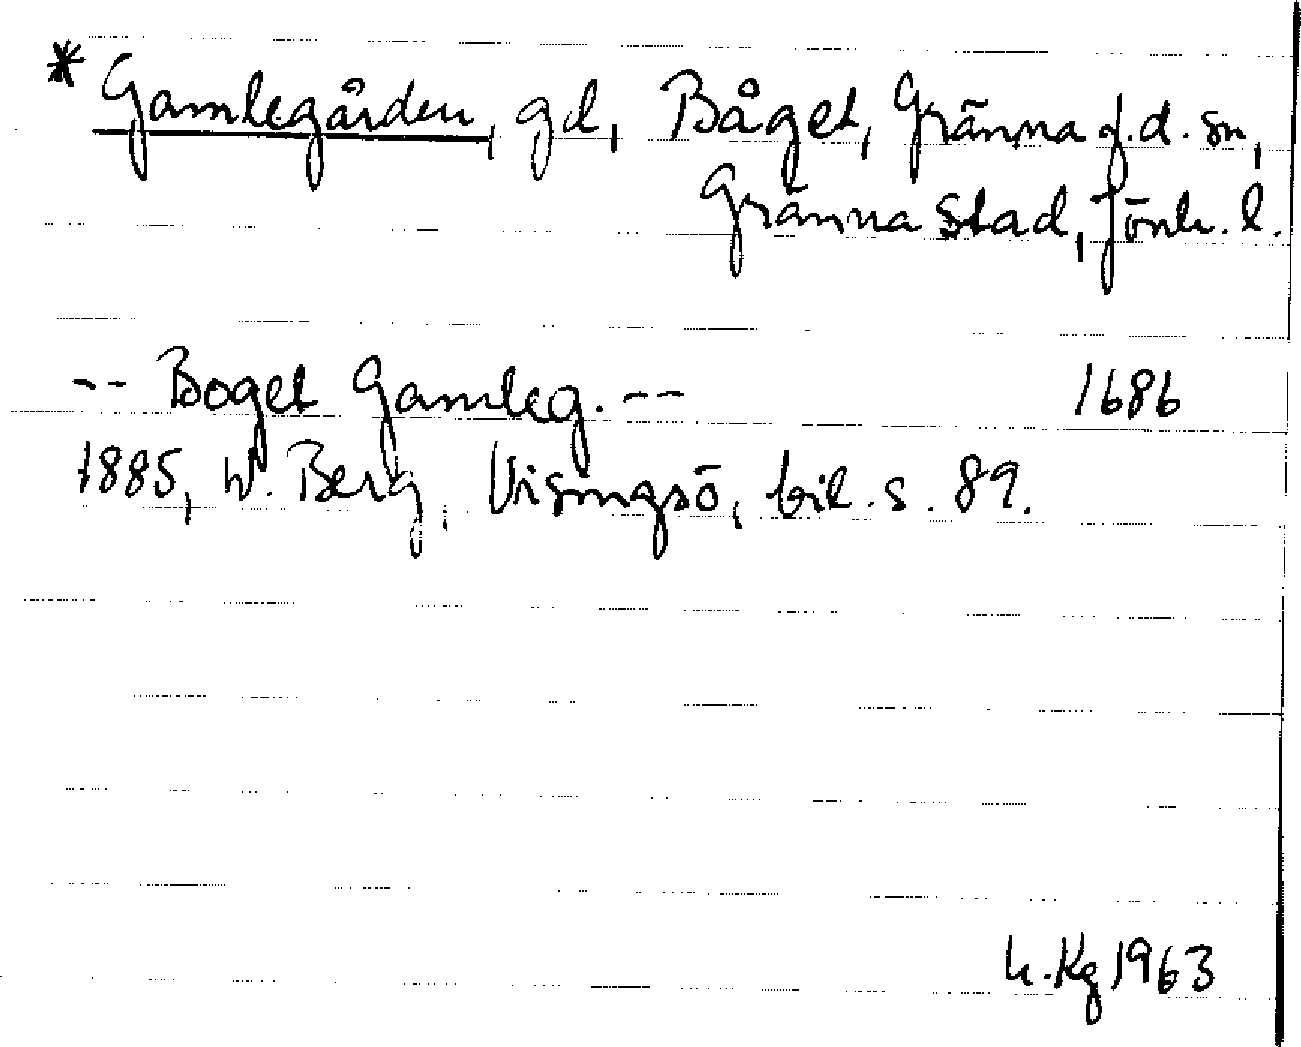 * Gamlegården, gd, Båget, Gränna f.d. sn,
Gränna stad, Jönk. l.
-- Boget Gamleg. -- 1686
1885, W. Berg, Visingsö, bil. s. 89.
h. Kg 1963